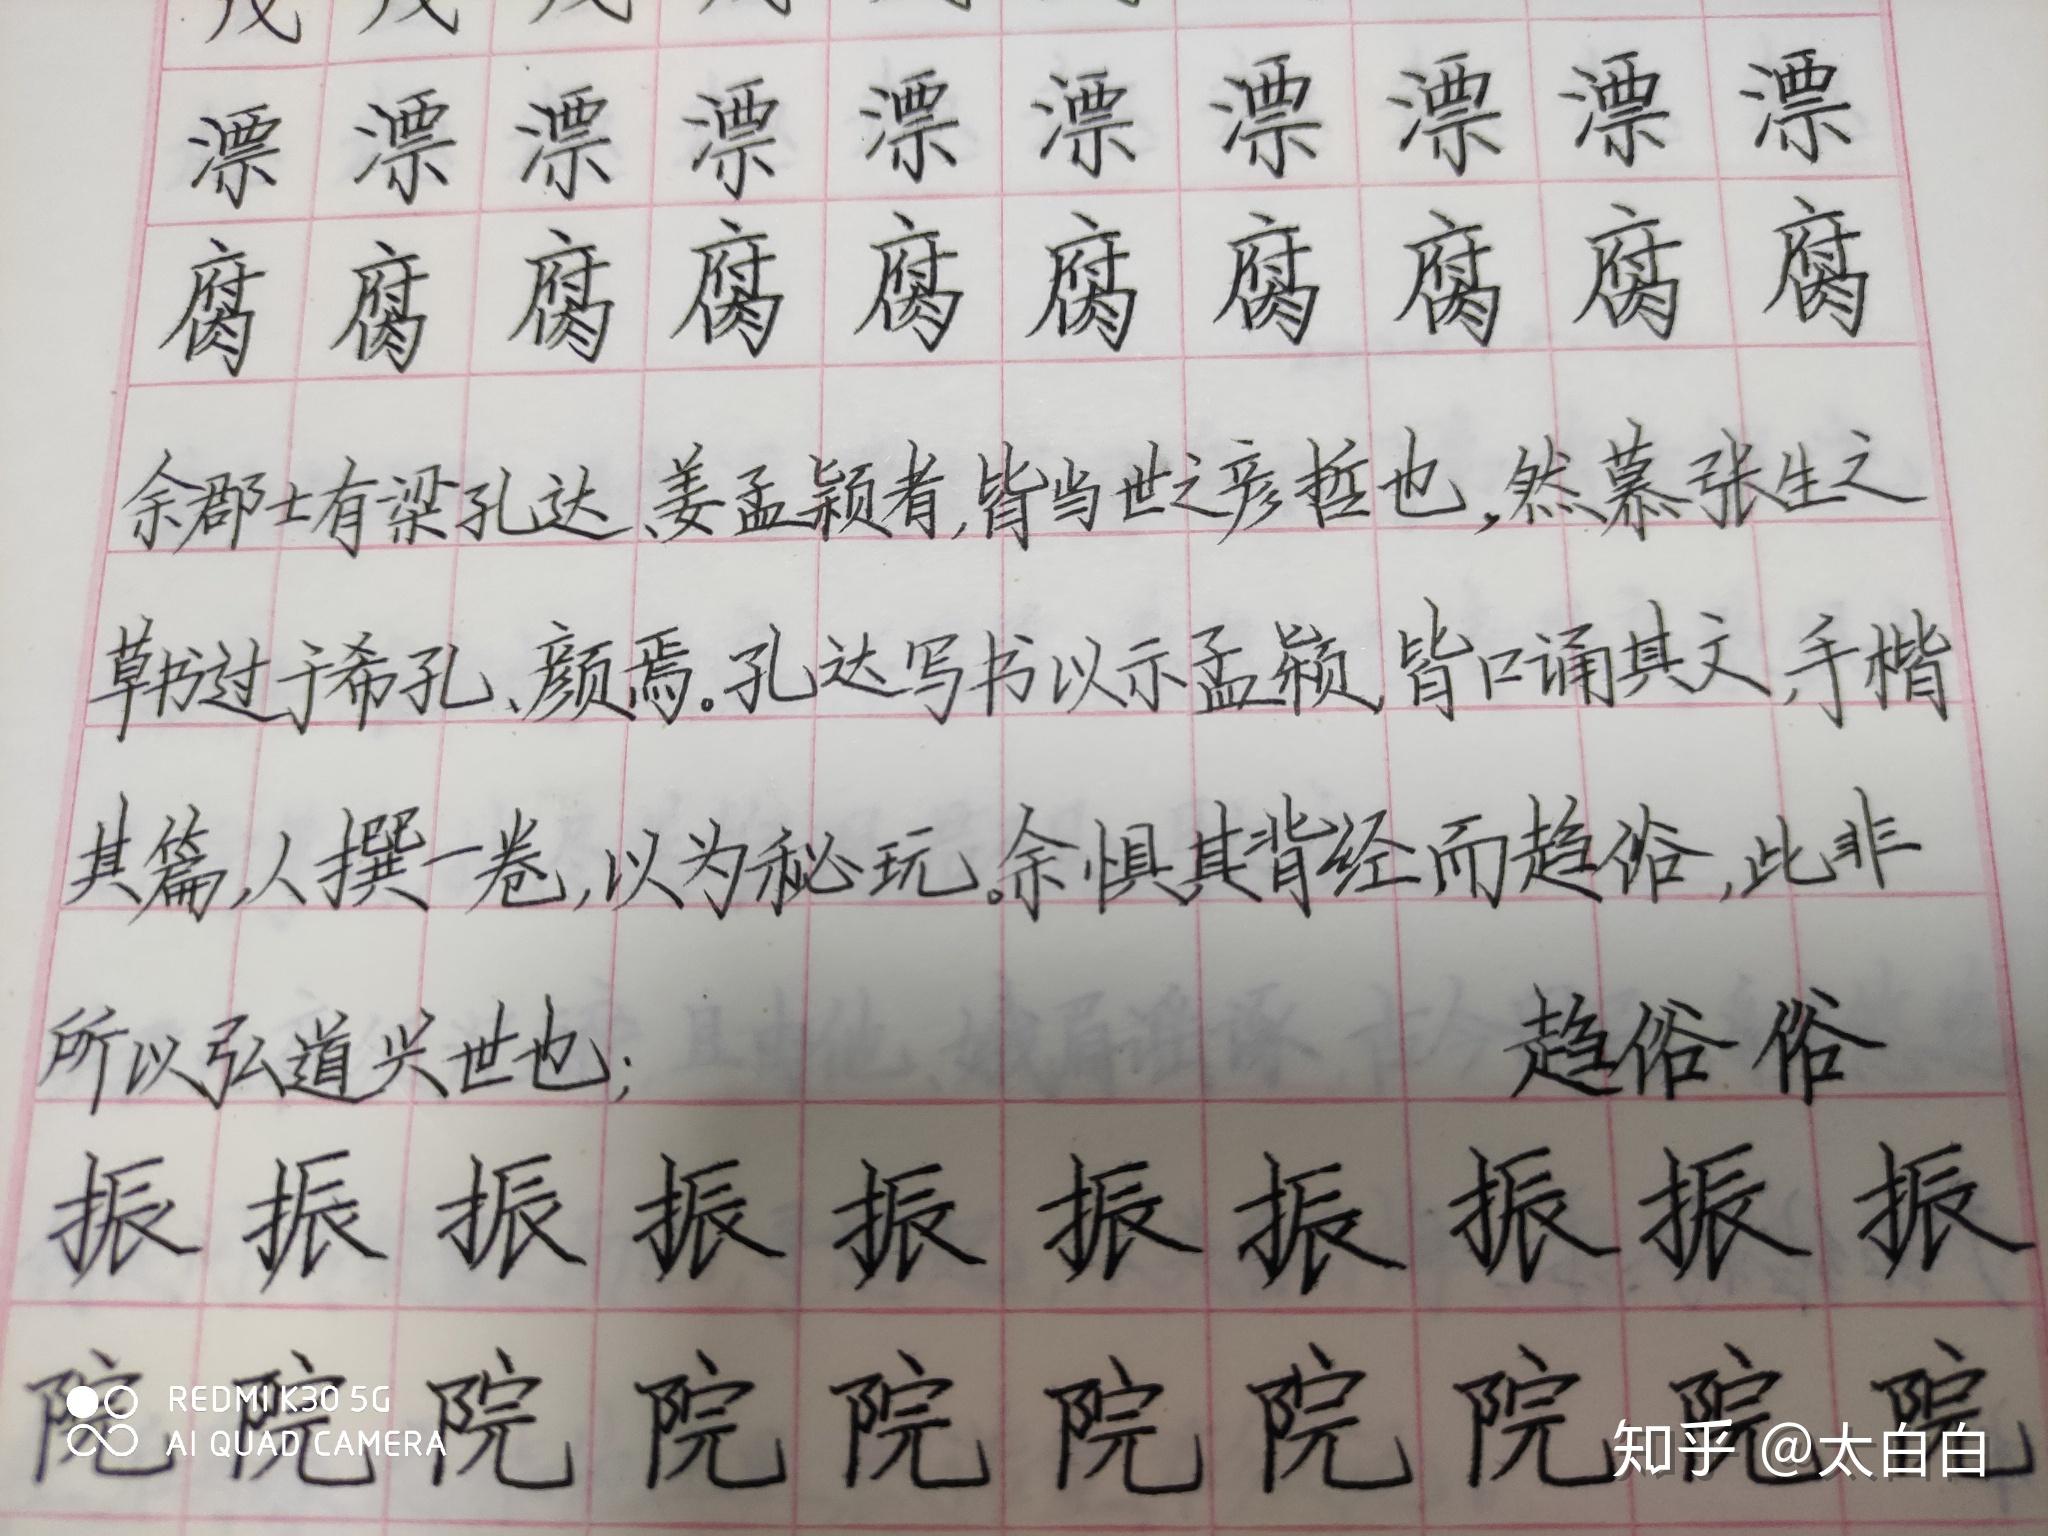 漂漂漂漂漂漂漂漂漂漂
腐腐腐腐腐腐腐腐腐腐
余郡士有梁孔达、姜孟颖者，皆当世之彦哲也，然慕张生之
草书过于希孔、颜焉。孔达写书以示孟颖，皆口诵其文，手楷
其篇，人撰一卷，以为秘玩。余惧其背经而趋俗，此非
所以弘道兴世也； 趋俗俗
振振振振振振振振振振
院院院院院院院院院院
REDMI K30 5G
AI QUAD CAMERA
知乎 @太白白